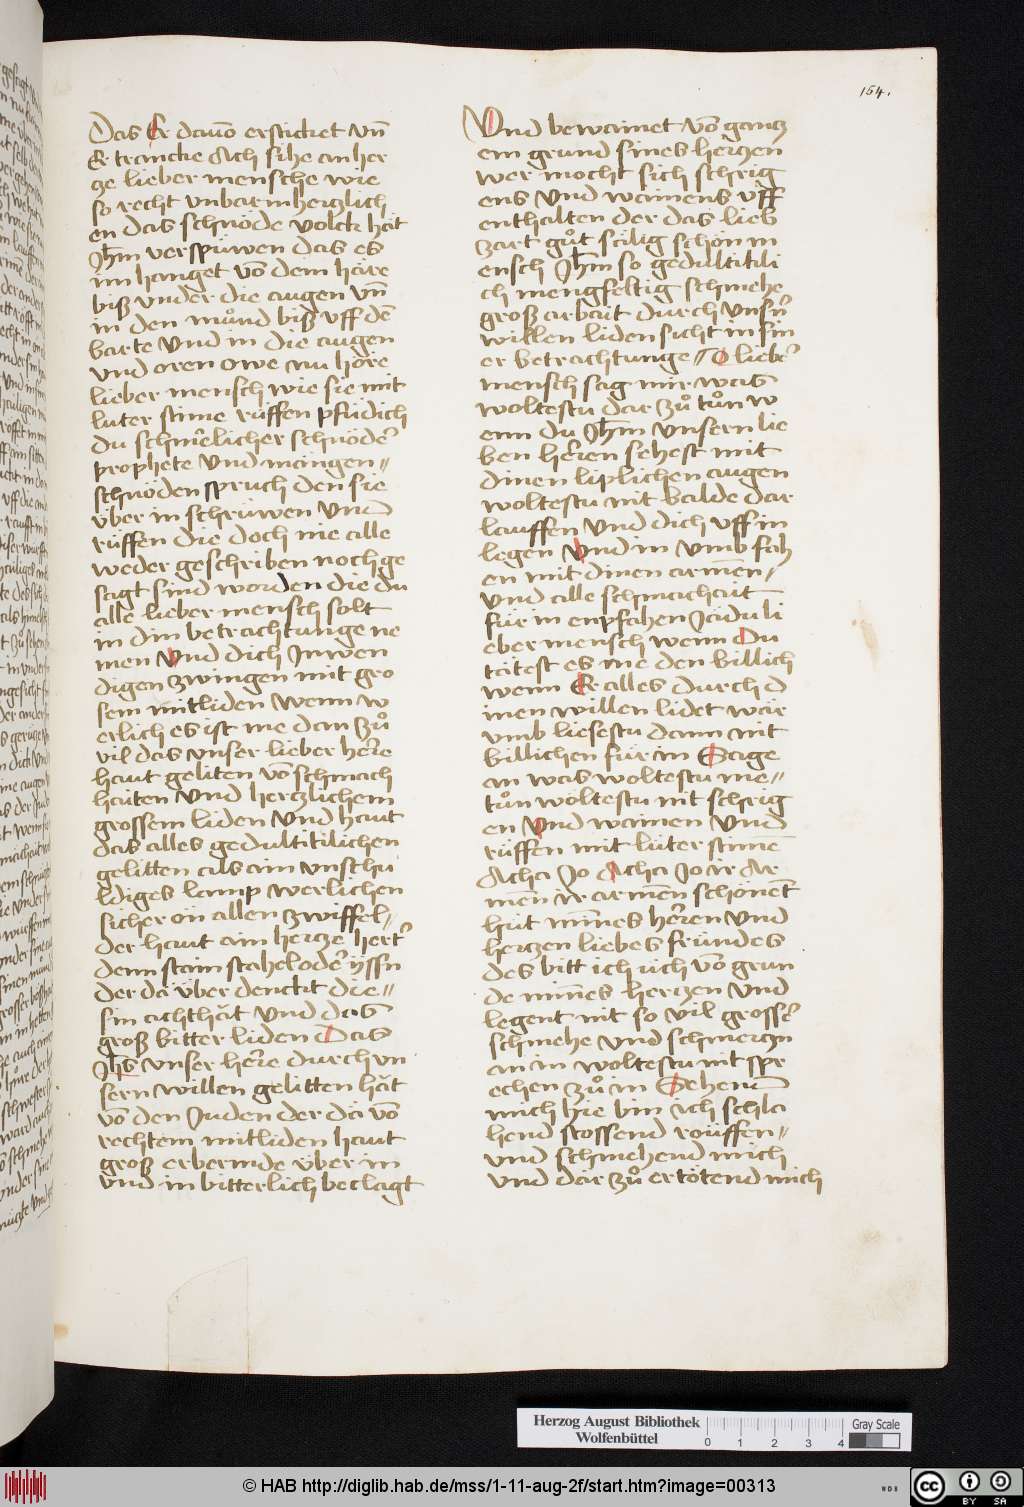 154.
Das Er dauō ersticket vn̄
Er trancke Ach sihe an her
ze lieber mensche wie
so recht vnbarmherzlich
en das schnöde volck hät
Jh̄m verspüwen das es
im hanget vō dem häre
biß vnder die augen vn̄
in den můnd biß vff dē
barte Vnd in die augen
vnd oren owe nu höre
lieber mensch wie sie mit
luter stime rüffen pfüdich
du schm̄elicher schnöder
prophete Vnd mängen //
schnöden spruch den sie
über in schrüwen Vnd
rüffen die doch nie alle
weder geschriben noch ge
sagt sind worden die du
alle lieber mensch solt
in din betrachtunge ne
men Vnd dich Inwen
digen zwingen mit gro
sem mitliden Wenn w
erlich es ist me dan zů
vil das vnser lieber here
haut geliten vō schmach
haiten Vnd herczlichem
grossem liden Vnd haut
das alles gedultitilichen
gelitten als ain vnschu
ldiges lamp werlichen
sicher on allen zwiffel //
der haut ain hercze hert
denn stain stahel oder yssn
der da über denckt die //
sin achthät Vnd das
groß bitter liden Das
Jh̄s vnser here durch vn
sern willen gelitten hät
vō den Juden der da vō
rechtem mitliden haut
groß erbermde über in
vnd in bitterlich beclagt
Vnd bewainet vō gancz
em grund sines herczen
wer mocht sich schrig
ens Vnd wainens vff
enthalten der das lieb
zart gůt sälig schön m
ensch Jh̄m so gedultitili
ch mengfeltig schmehe
groß arbait durch Vnsn̄
willen liden sicht in sin
er betrachtunge // O lieber
mensch sag mir was
woltestu dar zů tůn w
enn du Jh̄m Vnsern lie
ben heren sehest mit
dinen liplichen augen
woltestu nit balde dar
lauffen Vnd dich vff in
legen Vnd in vmb fah
en mit dinen armen //
Vnd alle schmachait
für in enpfahen Ja du li
eber mensch wenn Du
tätest es me den billich
wenn Er alles durch d
inen willen lidet war
vmb liesestu dann nit
billichen für in Sage
an was woltestu me //
tůn wöltestu nit schrig
en Vnd wainen Vnd
rüffen mit lüter stimē
Acha Jo Acha Jo ir Ar
men ir armen schönet
hüt mīnes heren Vnd
herczen liebes fründes
des bitt ich üch vō grun
de mīnes herczen Vnd
legent nit so vil grosser
schmehe Vnd schmerczn
an in woltestu nit spr
echen zů in Sehend
mich hie bin ich schla
hend stossend roüffen //
Vnd schmehend mich
Vnd dar zů ertötend mich
Herzog August Bibliothek
Wolfenbüttel
0 1 2 3 4
Gray Scale
© HAB http://diglib.hab.de/mss/1-11-aug-2f/start.htm?image=00313
WDB
cc
BY SA